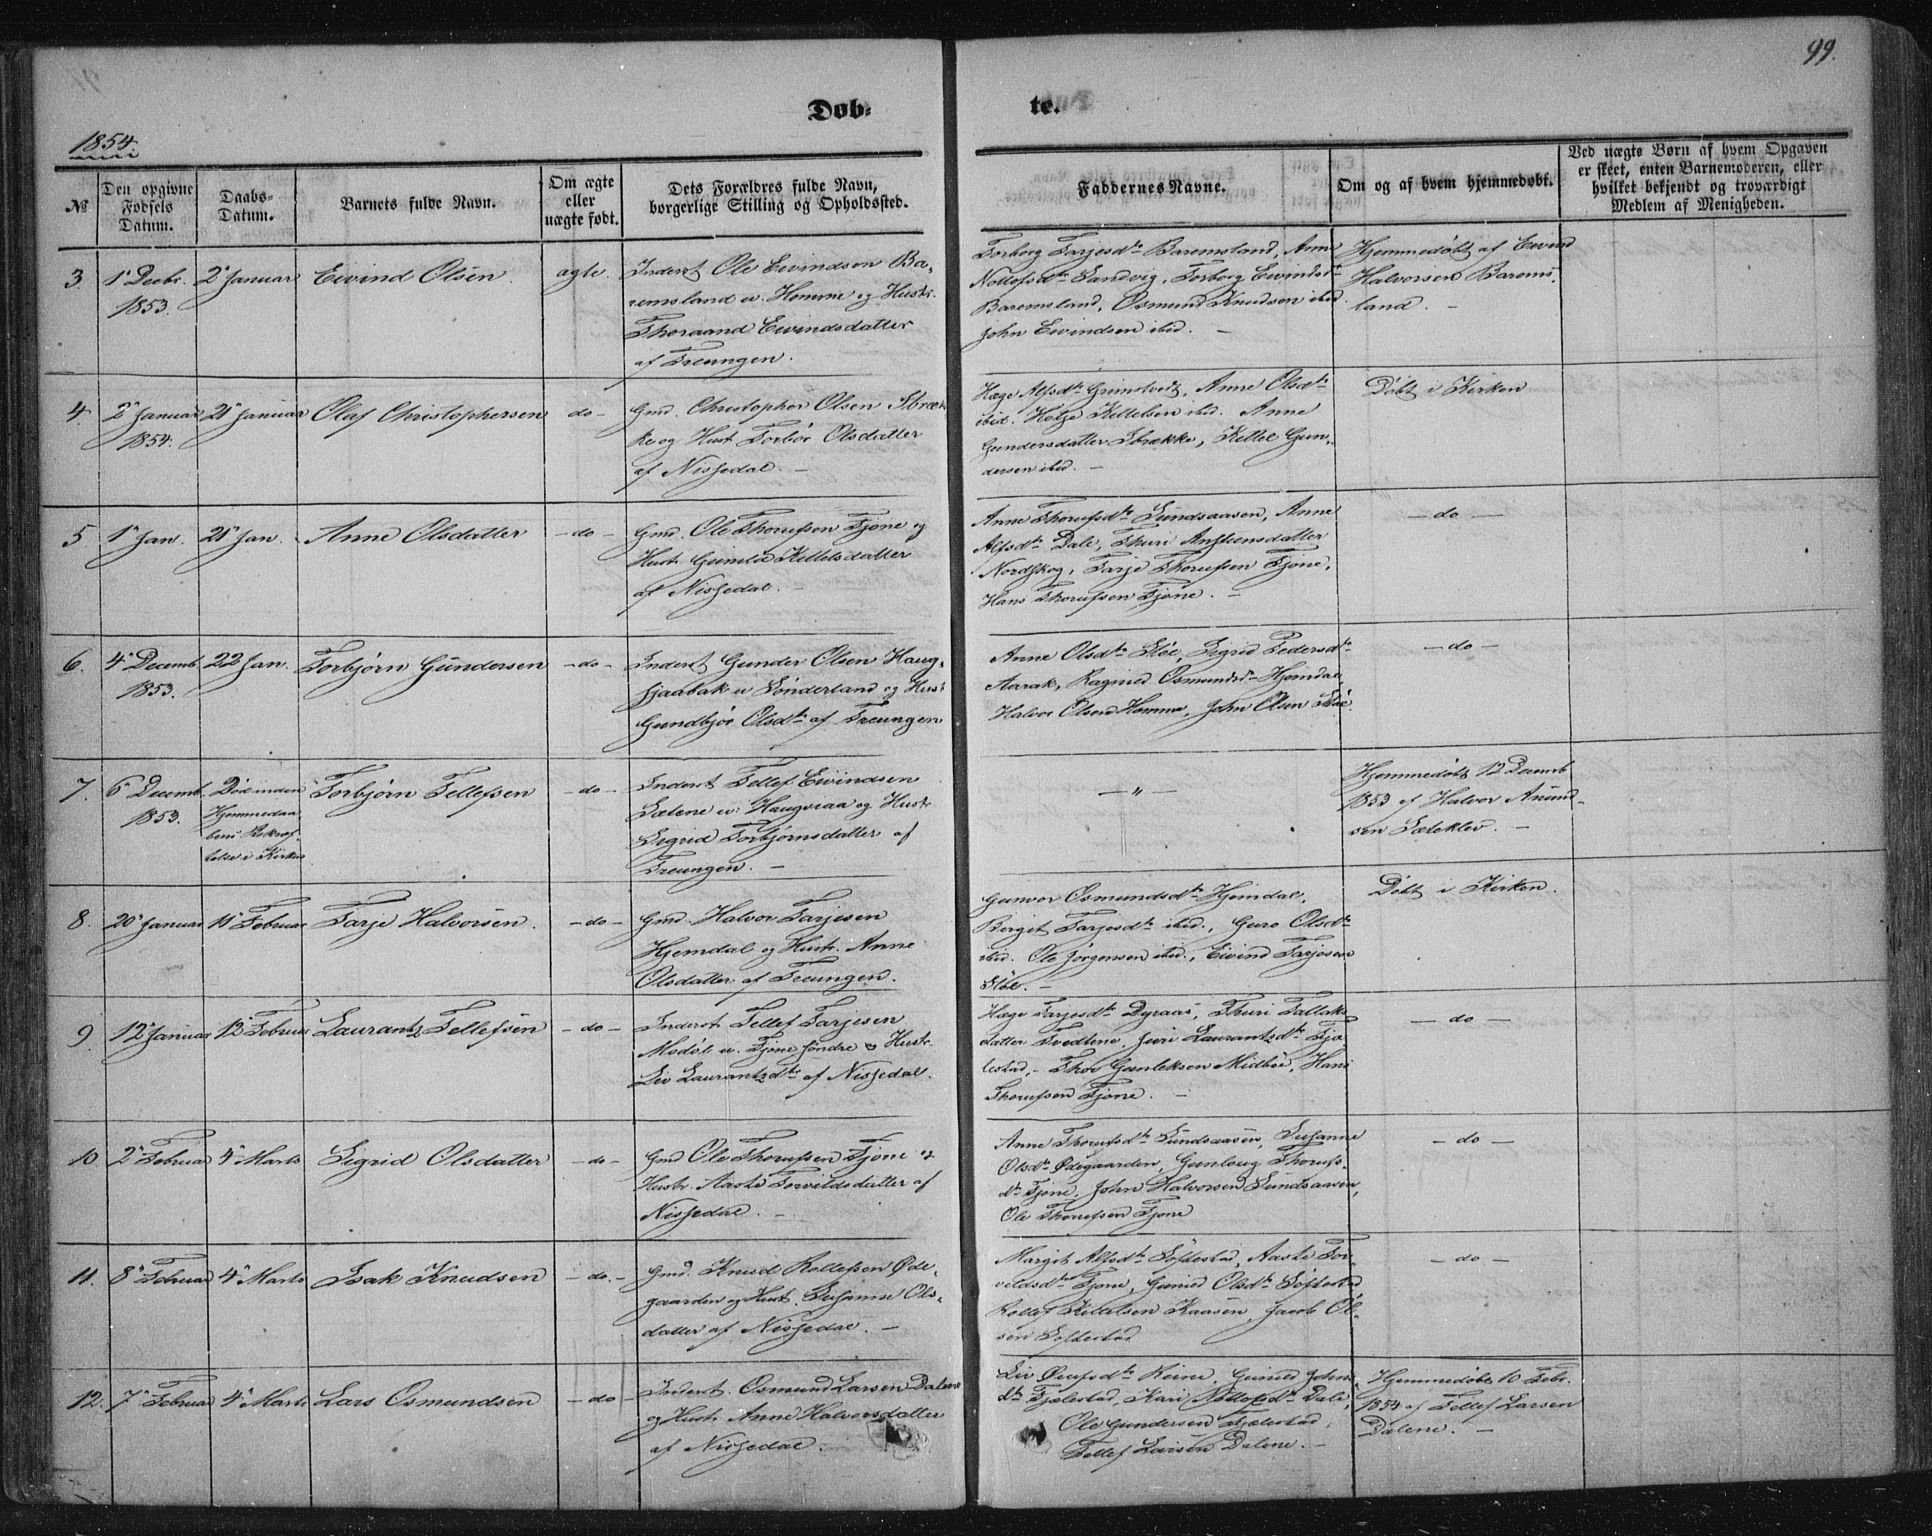 99.
Døb-
te.
1854.
№
Den opgivne
Fødsels
Datum.
Daabs-
Datum.
Barnets fulde Navn.
Om ægte
eller
uægte født.
Dets Forældres fulde Navn,
borgerlige Stilling og Opholdssted.
Faddernes Navne.
Om og af hvem hjemmedøbt.
Ved uægte Børn af hvem Opgaven
er skeet, enten Barnemoderen, eller
hvilket bekjendt og troværdigt
Medlem af Menigheden.
3
1 Decbr.
1853.
2 Januar
Eivind Olsen
ægte
Inderst Ole Eivindsen Ba-
remsland u. Homme og Hustr.
Thoraand Eivindsdatter
af Treungen.
Torborg Tarjesdtr Baremsland, Anne
Nottofsdtr Sandvig, Torborg Eivindsdtr
Baremsland, Osmund Knudsen ibid.
John Eivindsen ibid. -
Hjemmedøbt af Eivind
Halvorsen Barems-
land. -
4.
2 Januar
1854.
21 Januar
Olaf Christophersen
- do -
Gmd. Christopher Olsen Bræk
ke og Hust. Torbør Olsdatter
af Nissedal. -
Hæge Alfsdtr Grimstvedt, Anne Olsdtr
ibid. Helge Kittelsen ibid. Anne
Gundersdatter Brække, Kittel Gun-
dersen ibid. -
Døbt i Kirken
5
1 Jan.
21 Jan.
Anne Olsdatter
- do -
Gmd. Ole Thorufsen Tjøne og
Hustr. Gunild Kittelsdatter
af Nissedal. -
Anne Thorufsdtr Sundsaasen, Anne
Alfsdtr Dale, Thuri Anstensdatter
Nordskog, Tarje Thorufsen Tjøne,
Hans Thorufsen Tjøne. -
- do -
6.
4 Decemb
1853.
22 Jan.
Torbjørn Gundersen
- do -
Inderst Gunder Olsen Haug-
sjaabak u Sønderland og Hust.
Gundbjør Olsdtr af Treungen
Anne Olsdtr Støe, Sigrid Pedersdtr
Aarak, Ragnild Osmundsdtr Hjemdal,
Halvor Olsen Homme, John Olsen Støe.
- do -
7.
6 Decemb.
1853.
Død inden
Hjemmedaa
bens Bekræf-
telse i Kirken
Torbjørn Tellefsen
- do -
Inderst Tellef Eivindsen
Sætene u. Haugsraa og Hustr
Sigrid Torbjørnsdatter af
Treungen. -
- " -
Hjemmedøbt 12 Decemb
1853 af Halvor Anund-
sen Sæteklev. -
8.
20 Januar
11 Februar
Tarje Halvorsen.
- do -
Gmd. Halvor Tarjesen
Hjemdal og Hustr. Anne
Olsdatter af Treungen.
Gunvor Osmundsdtr Hjemdal,
Bergit Tarjesdtr ibid., Guro Olsdtr
ibid. Ole Jørgensen ibid., Eivind Tarjesen
Støe. -
Døbt i Kirken.
9
12 Januar
12 Februar
Laurantz Tellefsen
- do -
Inderst Tellef Tarjesen
Modøl u. Tjøne søndre og Hustr.
Liv Laurantzdtr af Nissedal.
Hæge Tarjesdtr Dyraas, Thuri Tallaks-
datter Tvedtene, Juri Laurantzdtr Fjæ-
lestad, - Thor Gunleksen Midbøe, Hans
Thorufsen Tjøne. -
- do -
10
2 Februar
4 Marts
Sigrid Olsdatter
- do -
Gmd Ole Thorufsen Tjøne og
Hustr. Aaste Torvildsdatter af
Nissedal. -
Anne Thorufsdtr Sundsaasen, Susanne
Olsdtr Ødegaarden, Gunloug Thorufs-
dtr Tjøne, John Halvorsen Sundsaasen,
Ole Thorufsen Tjøne
- do -
11.
8 Februar
4 Marts
Isak Knudsen
- do. -
Gmd. Knud Rollefsen Øde-
gaarden og Hust. Susanne Ols-
datter af Nissedal. -
Margit Alfsdtr Søftestad, Aaste Tor-
vildsdtr Tjøne, Gunild Olsdtr Søftestad
Rollef Kittelsen Kaasen, Jacob Ol-
sen Søftestad
- do -
12.
7 Februar
4 Marts
Lars Osmundsen
- do -
Inderst. Osmund Larsen Dalene
og Hustr. Anne Halvorsdatter
af Nissedal.
Liv dtr Heine, Gunild Johns-
dtr Fjælestad, Kari dtr Dale,
Ole Gundersen Fjælestad,
Tellef Larsen Dalene. -
Hjemmedøbt 10 Febr.
1854 af Tellef Larsen
Dalene. -